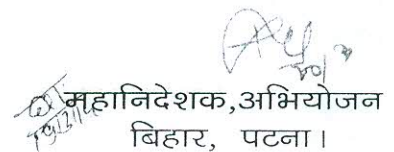 महानिदेशक,अभियोजन
बिहार, पटना।